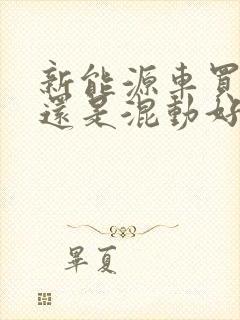 新能源車買
還是混動好
畢夏